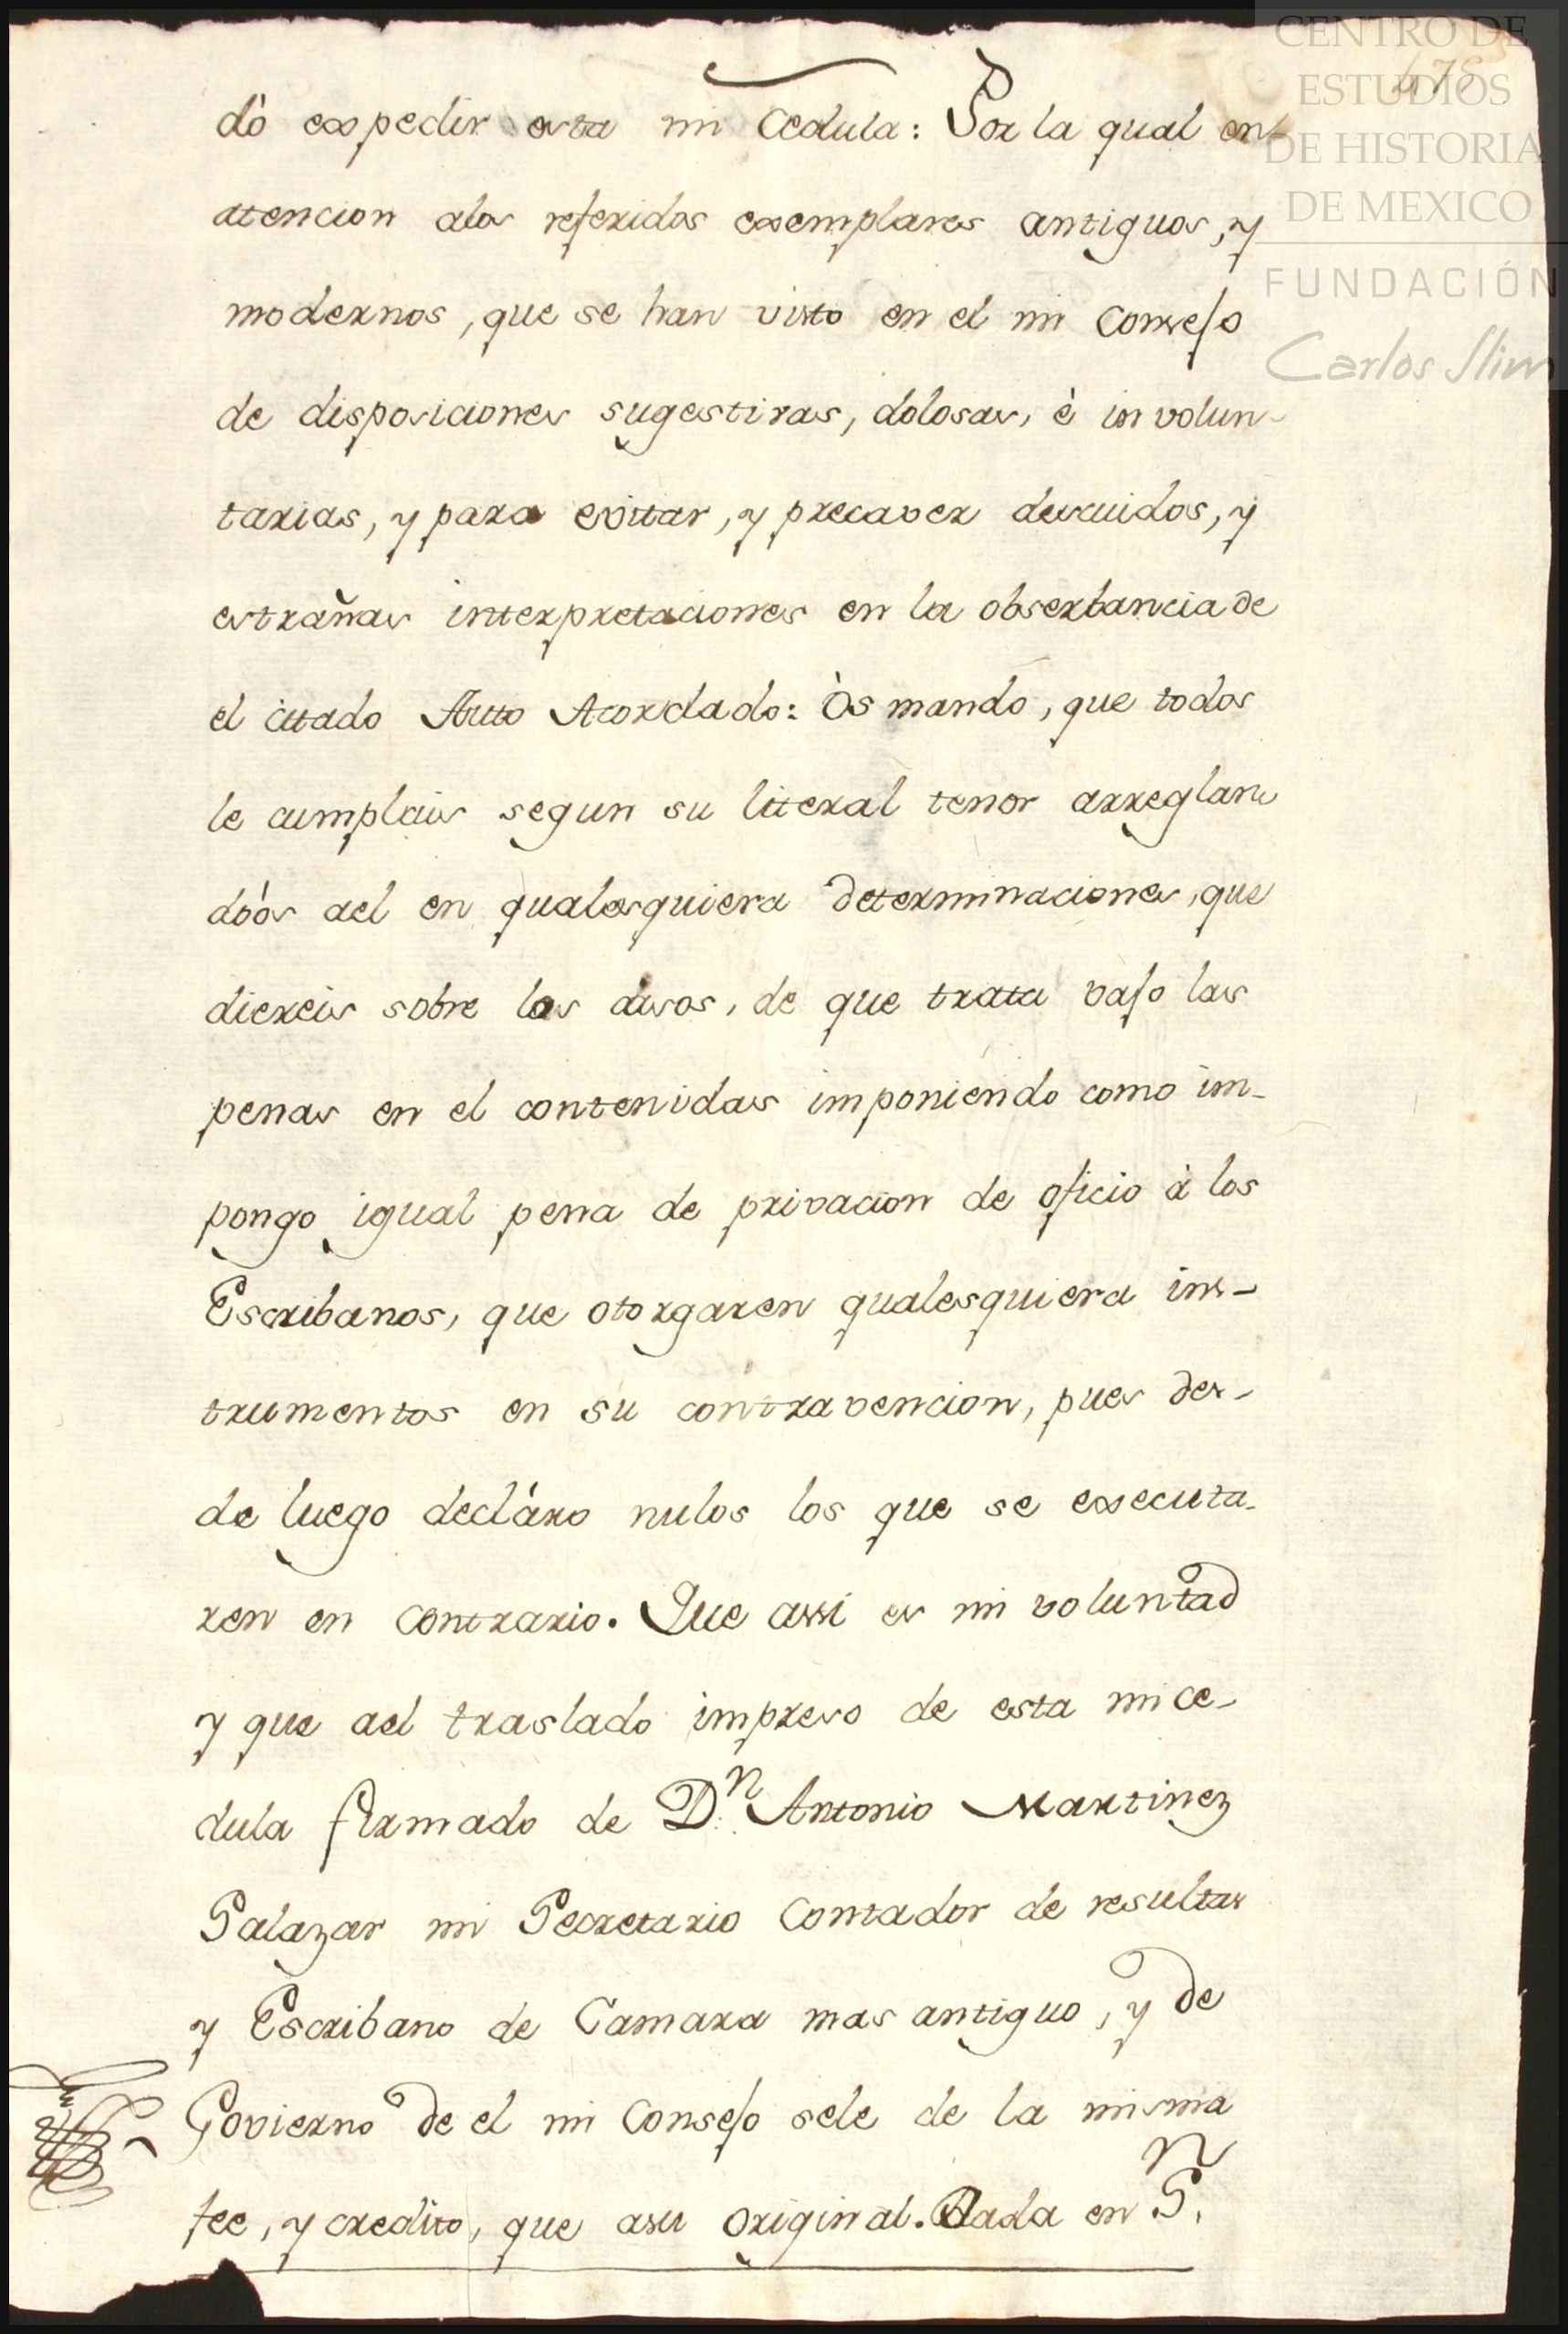 CENTRO DE
ESTUDIOS
DE HISTORIA
DE MEXICO
FUNDACIÓN
Carlos Slim
dò expedir esta mi Cedula: Por la qual en
atencion alos referidos exemplares antiguos, y
modernos, que se han visto en el mi Consejo
de disposiciones sugestivas, dolosas, è involun-
tarias, y para evitar, y precaver descuidos, y
estrañas interpretaciones en la obserbancia de
el citado Auto Acordado: Òs mando, que todos
le cumplais segun su literal tenor arreglan
dóòs ael en qualesquiera determinaciones, que
diereis sobre los casos, de que trata vajo las
penas en el contenidas imponiendo como im-
pongo igual pena de privacion de oficio à los
Escribanos, que otorgaren qualesquiera ins-
trumentos en su contravencion, pues des-
de luego decláro nulos los que se executa-
ren en contrario. Que assi es mi voluntad
y que ael traslado impreso de esta mi ce-
dula firmado de D.n Antonio Martinez
Salazar mi Secretario Contador de resultas
y Escribano de Camara mas antiguo, y de
Govierno de el mi Consejo sele de la misma
fee, y credito, que asu original. Dada en S.n